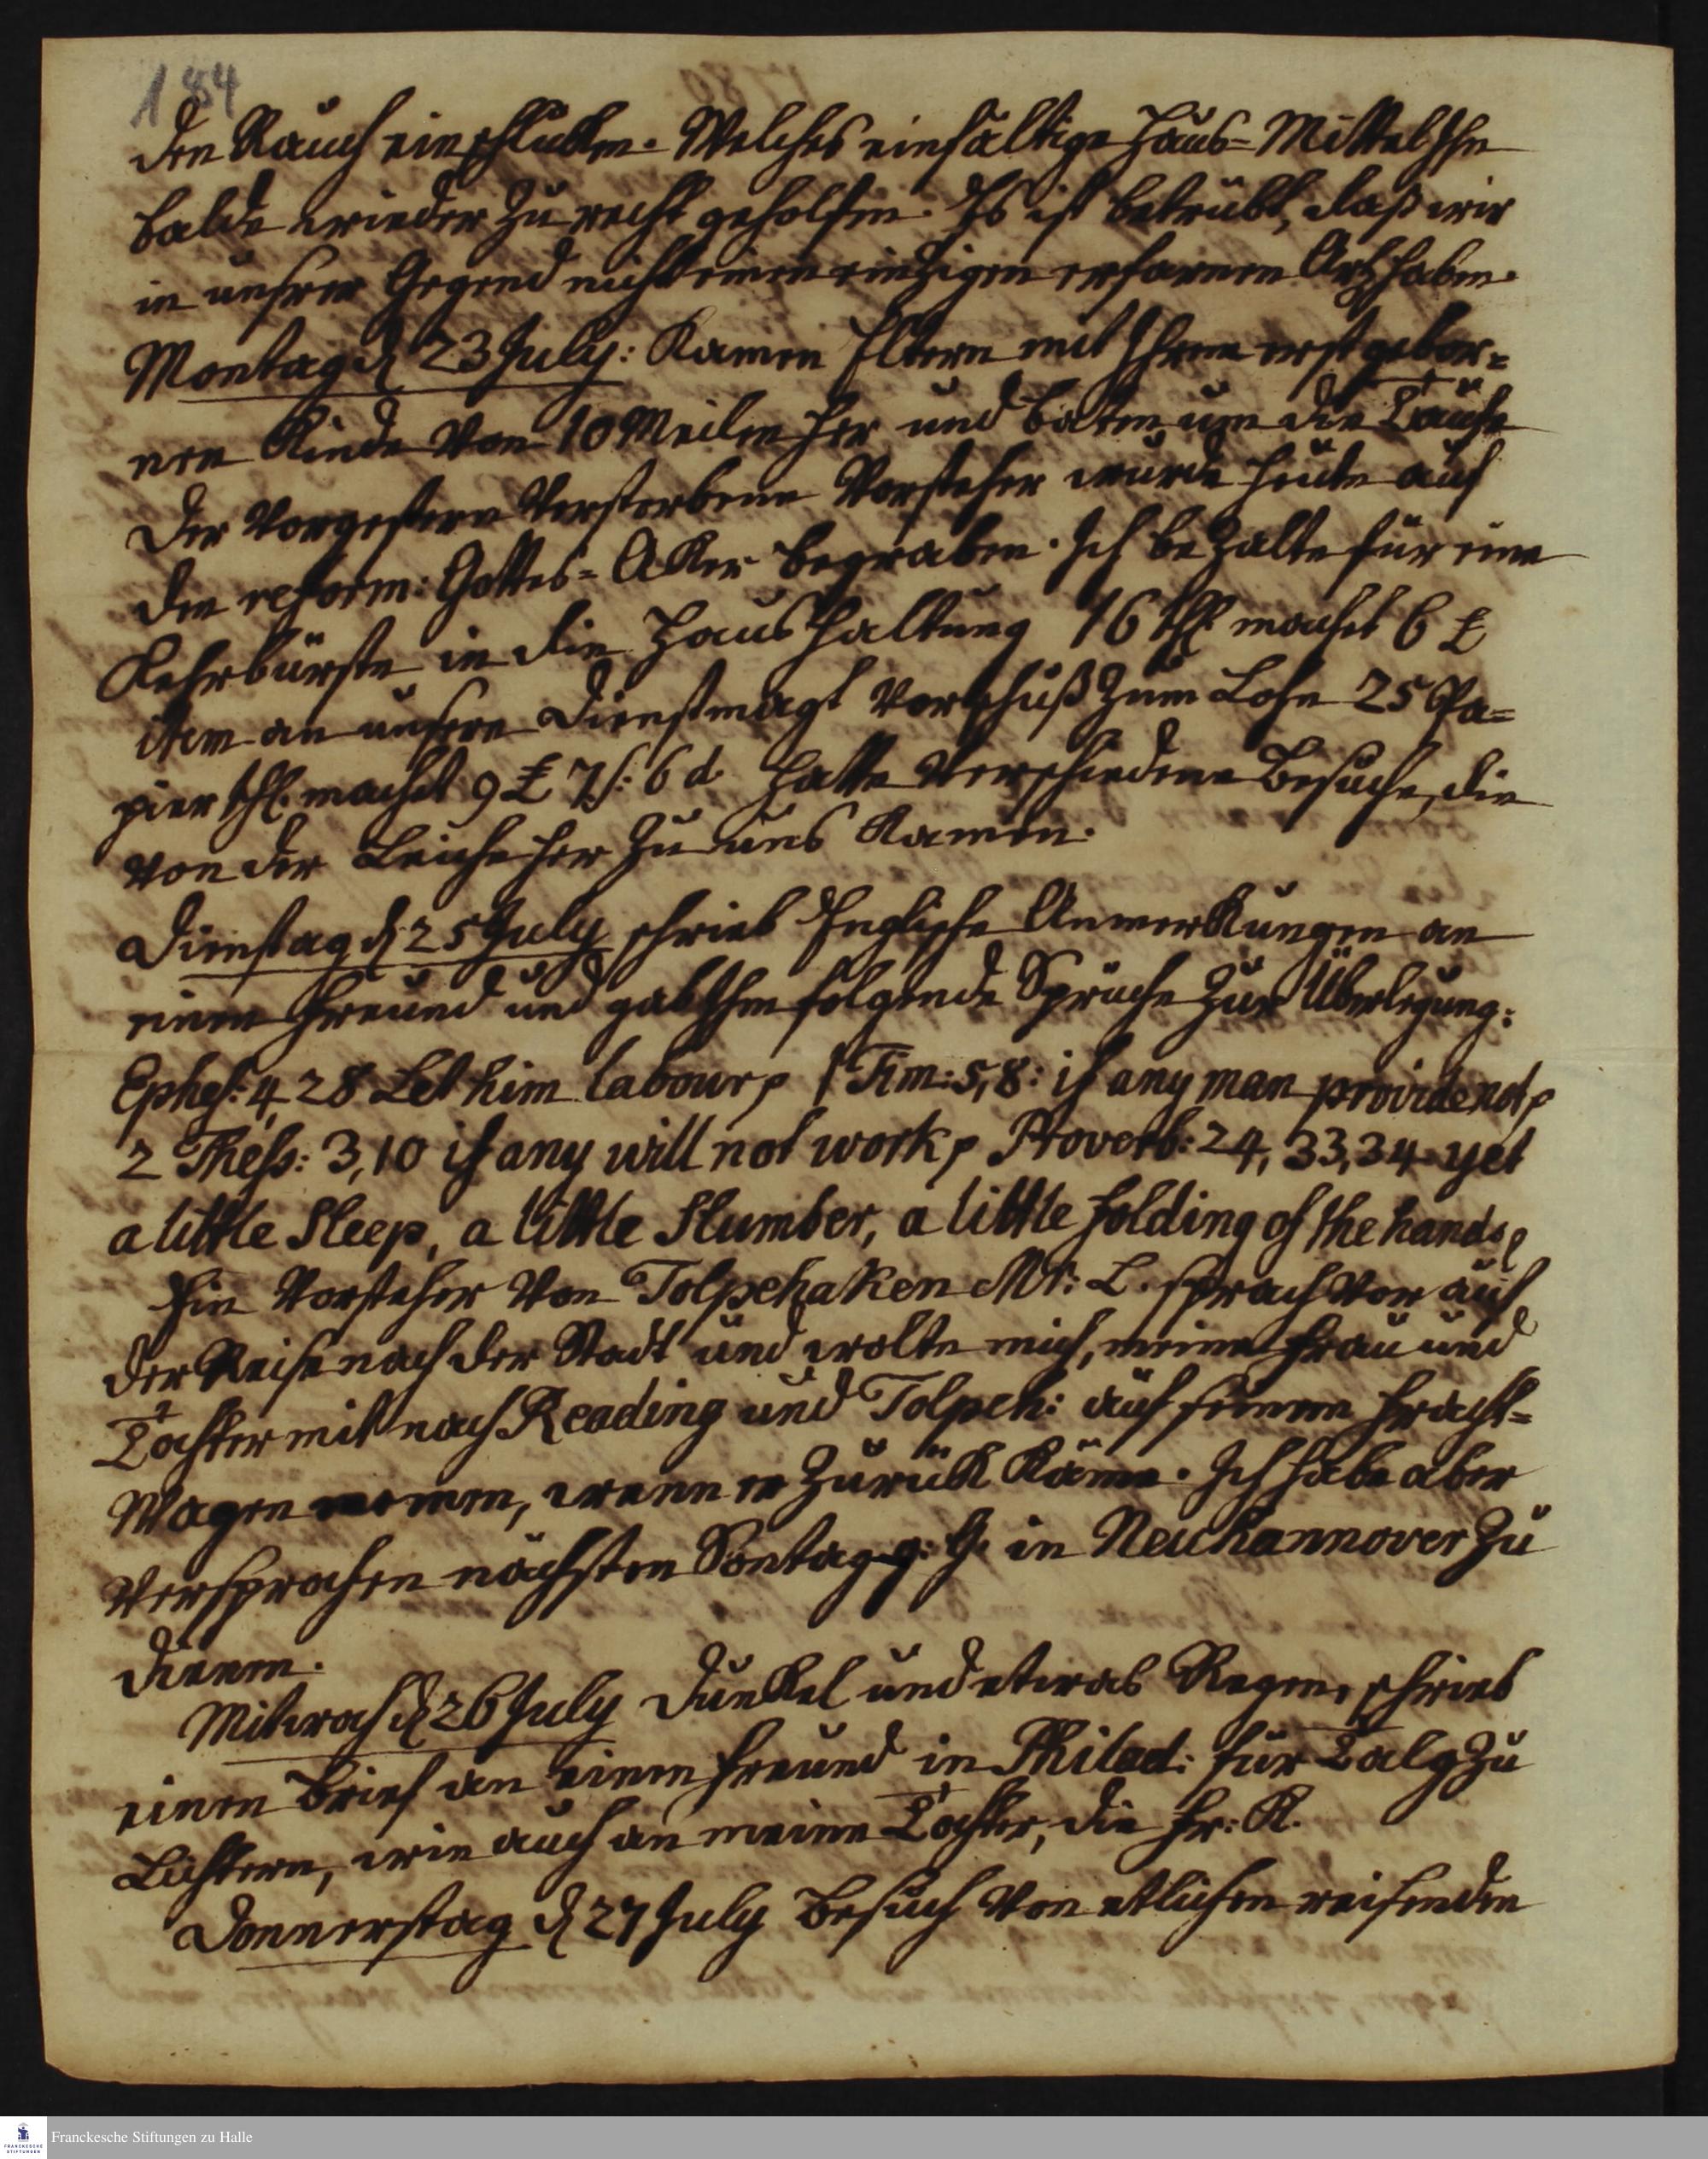 184
den Rauch einschlucken. Welches einfältige Haus-Mittel Ihn
balde wieder zu recht geholfen. Es ist betrübt, daß wir
in unsrer Gegend nicht einen einzigen erfarnen Arzt haben.
Montag d 23 July: Kamen Eltern mit Ihrem erst gebor=
nen Kinde von 10 Meilen her und baten um die Taufe
Der vorgestern verstorbene Vorsteher wurde heute auf
den reform: Gottes=Aker begraben. Ich bezalte für eine
Kehrbürste in die Haushaltung 16 thl. macht 6 £
item an unsere Dienstmagt Vorschuß zum Lohn 25 Pa=
pier thl. macht 9 £ 7 s: 6 d. hatte verschiedene Besuche, die
von der Leiche her zu uns Kamen.
Dienstag d 25 July schrieb Englische Anmerkungen an
einen Freund und gab Ihm folgende Sprüche zur Überlegung:
Ephes: 4, 28 Let him labour, 1 Tim: 5, 8: if any man provide not,
2 Thess: 3, 10 if any will not work, Proverb: 24, 33, 34 yet
a little Sleep, a little Slumber, a little folding of the hands,
Ein Vorsteher von Tolpehaken Mr: L. sprach vor auf
der Reise nach der Stadt und wolte mich, meine Frau und
Tochter mit nach Reading und Tolpeh: auf seinem Fracht=
Wagen nemen, wenn er zurük käme. Ich habe aber
versprochen nächsten Sontag g. G. in Neuhannover zu
dienen.
Mitwoch d 26 July dunkel und etwas Regen, schrieb
einen Brief an einen Freund in Philad: für Talg zu
Lichtern, wie auch an meine Tochter, die Fr: K.
Donnerstag d 27 July Besuch von etlichen reisenden
Franckesche Stiftungen zu Halle
FRANCKESCHE
STIFTUNGEN